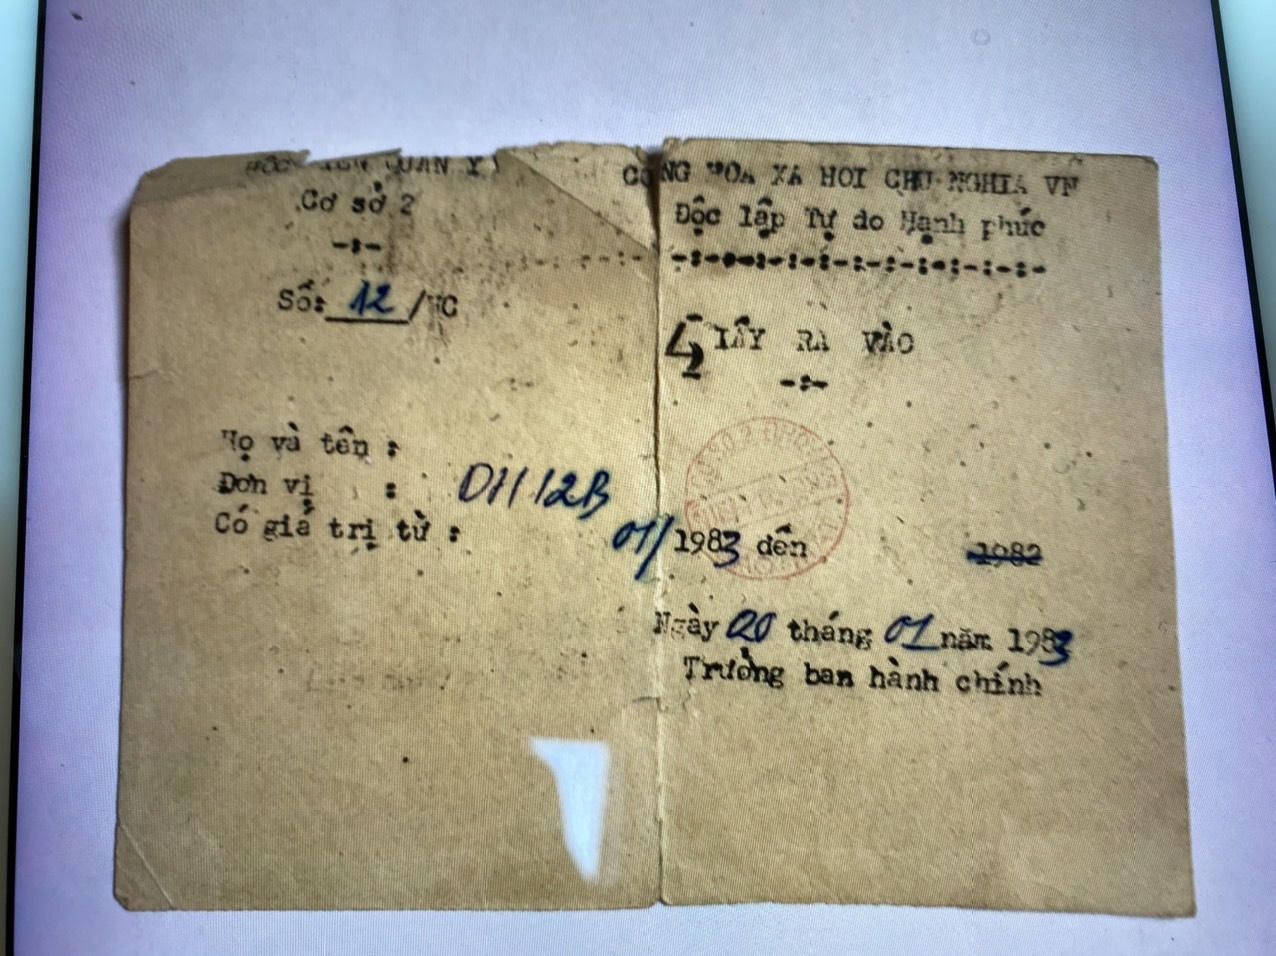 HỌC VIỆN QUÂN Y
Cơ sở 2
-:-
Số: 12/VC
CỘNG HÒA XÃ HỘI CHỦ NGHĨA VN
Độc lập Tự do Hạnh phúc
-:-:-:-:-:-:-:-:-:-:-
GIẤY RA VÀO
-:-
Họ và tên :
Đơn vị : DH12B
Có giá trị từ : 01/1983 đến 1982
Ngày 20 tháng 01 năm 1983
Trưởng ban hành chính